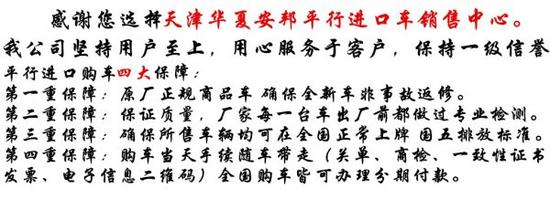 感谢您选择天津华夏安邦平行进口车销售中心。
我公司坚持用户至上，用心服务于客户，保持一级信誉
平行进口购车四大保障：
第一重保障：原厂正规商品车 确保全新车非事故返修。
第二重保障：保证质量，厂家每一台车出厂前都做过专业检测。
第三重保障：确保所售车辆均可在全国正常上牌 国五排放标准。
第四重保障：购车当天手续随车带走（关单、商检、一致性证书
发票、电子信息二维码）全国购车皆可办理分期付款。